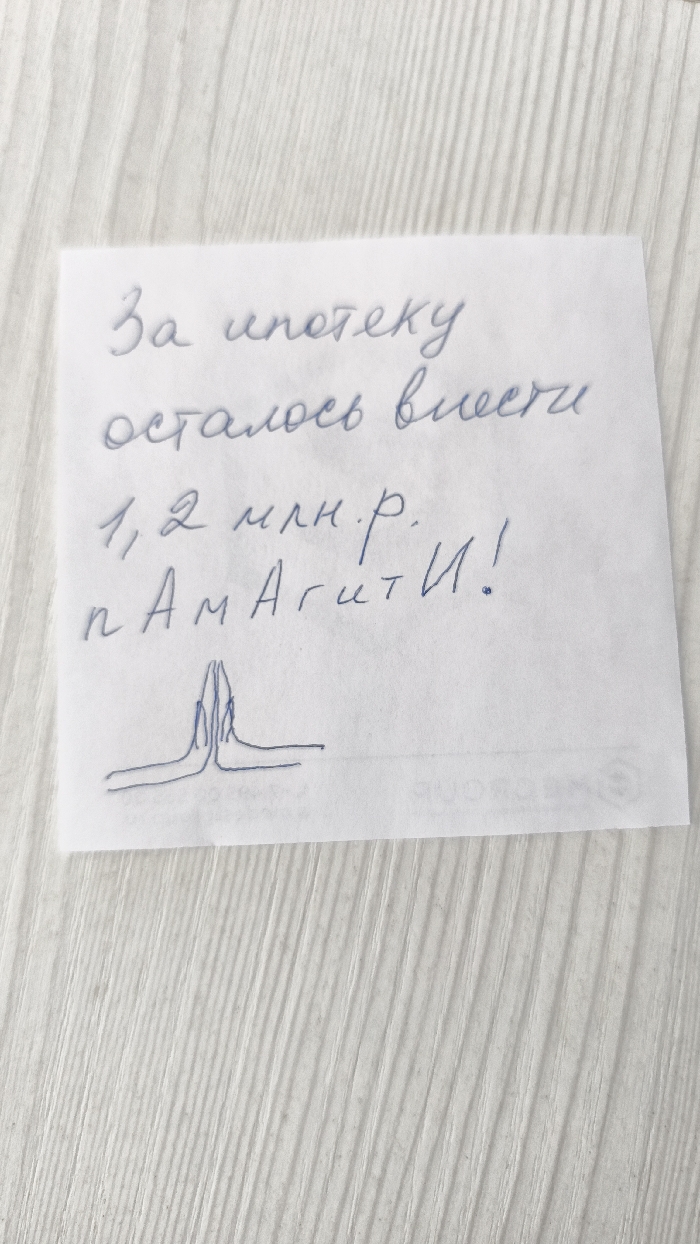 За ипотеку
осталось внести
1,2 млн.р.
пАмАгитИ!